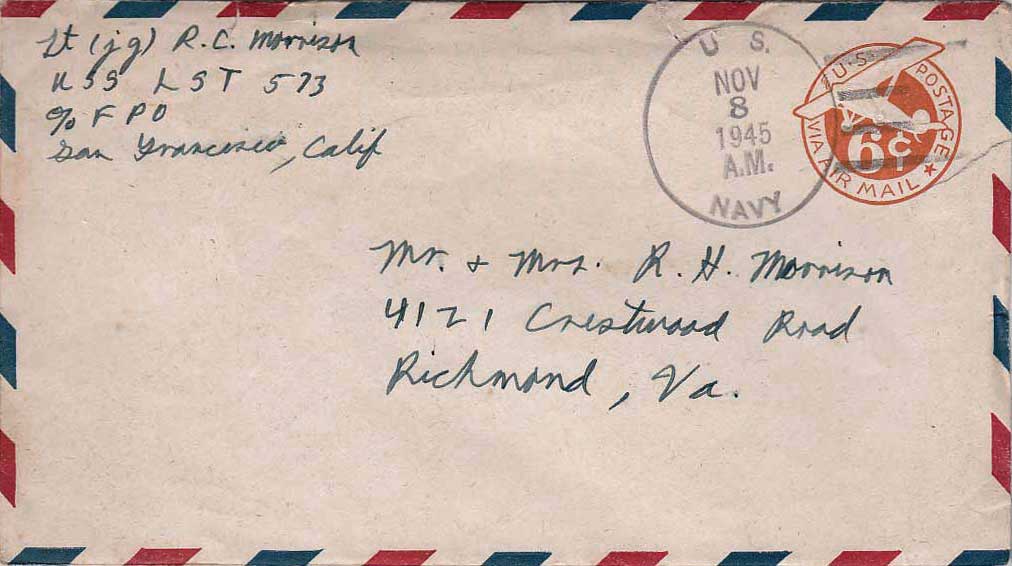 Lt (jg) R.C. Morrison
USS LST 573
c/o F P O
San Francisco, Calif
U S.
NOV
8
1945
A.M.
NAVY
U·S· POSTAGE
6¢
VIA AIR MAIL
Mr. + Mrs. R. H. Morrison
4121 Crestwood Road
Richmond, Va.